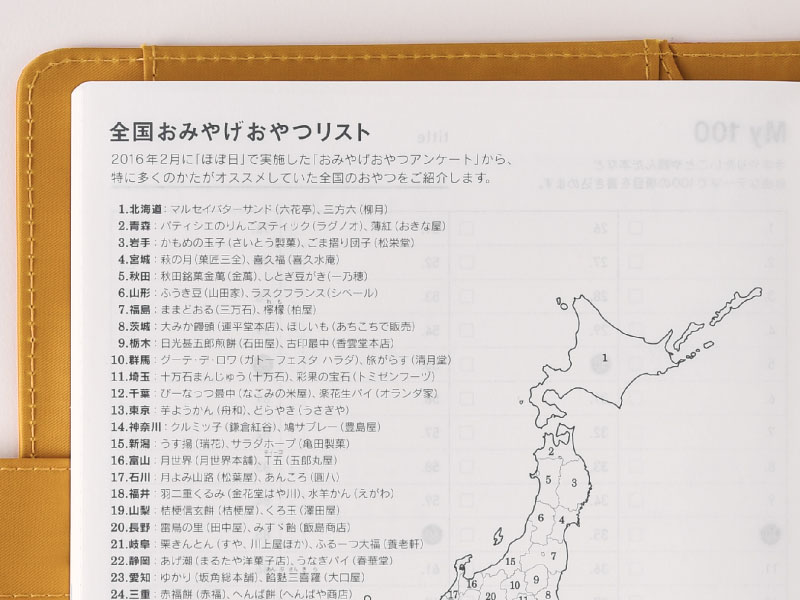 全国おみやげおやつリスト
2016年2月に「ほぼ日」で実施した「おみやげおやつアンケート」から、
特に多くのかたがオススメしていた全国のおやつをご紹介します。
1.北海道：マルセイバターサンド（六花亭）、三方六（柳月）
2.青森：パティシエのりんごスティック（ラグノオ）、薄紅（おきな屋）
3.岩手：かもめの玉子（さいとう製菓）、ごま摺り団子（松栄堂）
4.宮城：萩の月（菓匠三全）、喜久福（喜久水庵）
5.秋田：秋田銘菓金萬（金萬）、しとぎ豆がき（一乃穂）
6.山形：ふうき豆（山田家）、ラスクフランス（シベール）
7.福島：ままどおる（三万石）、檸檬（柏屋）
8.茨城：大みか饅頭（運平堂本店）、ほしいも（あちこちで販売）
9.栃木：日光甚五郎煎餅（石田屋）、古印最中（香雲堂本店）
10.群馬：グーテ・デ・ロワ（ガトーフェスタ ハラダ）、旅がらす（清月堂）
11.埼玉：十万石まんじゅう（十万石）、彩果の宝石（トミゼンフーヅ）
12.千葉：びーなっつ最中（なごみの米屋）、楽花生パイ（オランダ家）
13.東京：芋ようかん（舟和）、どらやき（うさぎや）
14.神奈川：クルミッ子（鎌倉紅谷）、鳩サブレー（豊島屋）
15.新潟：うす揚（瑞花）、サラダホープ（亀田製菓）
16.富山：月世界（月世界本舗）、T五（五郎丸屋）
17.石川：月よみ山路（松葉屋）、あんころ（圓八）
18.福井：羽二重くるみ（金花堂はや川）、水羊かん（えがわ）
19.山梨：桔梗信玄餅（桔梗屋）、くろ玉（澤田屋）
20.長野：雷鳥の里（田中屋）、みすゞ飴（飯島商店）
21.岐阜：栗きんとん（すや、川上屋ほか）、ふるーつ大福（養老軒）
22.静岡：あげ潮（まるたや洋菓子店）、うなぎパイ（春華堂）
23.愛知：ゆかり（坂角総本舗）、餡麩三喜羅（大口屋）
24.三重：赤福餅（赤福）、へんば餅（へんばや商店）
1
2
5
3
6
4
7
15
10
9
16
17
20
11
8